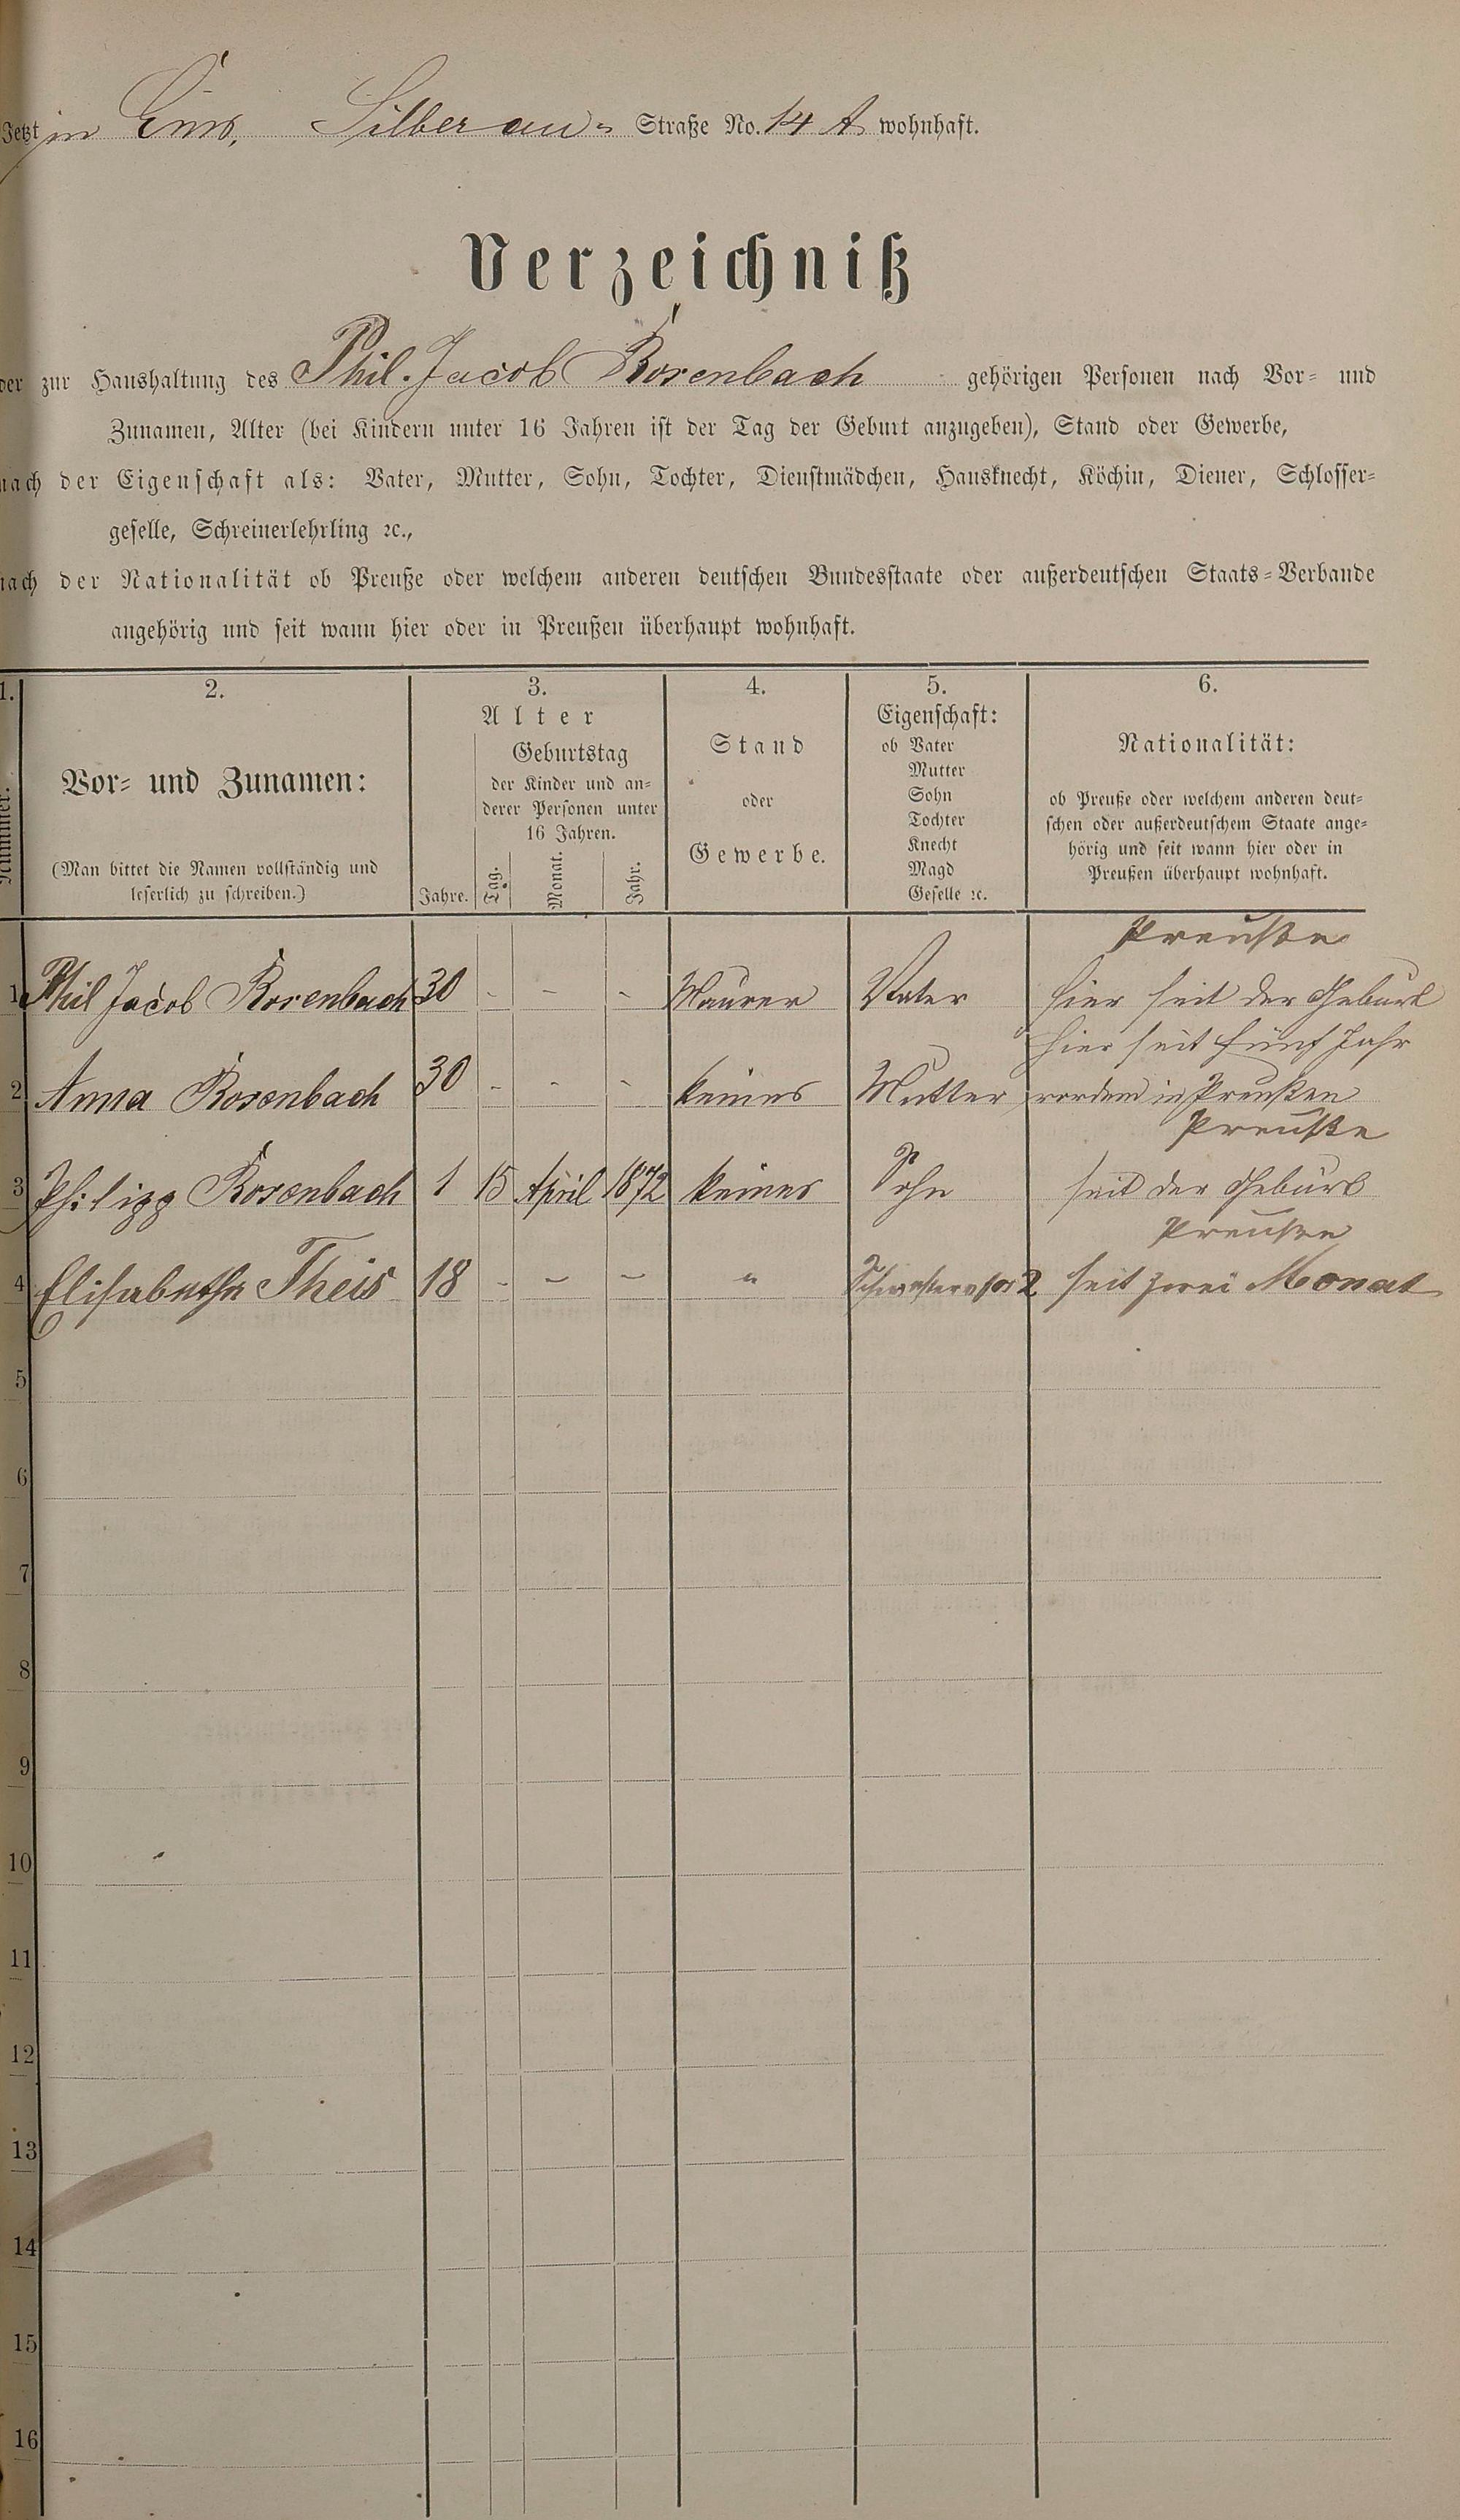 Jetzt in Ems, Silberau- Straße No. 14 A wohnhaft.
Verzeichniß
der zur Haushaltung des Phil. Jacob Rosenbach gehörigen Personen nach Vor- und
Zunamen, Alter (bei Kindern unter 16 Jahren ist der Tag der Geburt anzugeben), Stand oder Gewerbe,
nach der Eigenschaft als: Vater, Mutter, Sohn, Tochter, Dienstmädchen, Hausknecht, Köchin, Diener, Schlosser-
geselle, Schreinerlehrling ꝛc.,
nach der Nationalität ob Preuße oder welchem anderen deutschen Bundesstaate oder außerdeutschen Staats-Verbande
angehörig und seit wann hier oder in Preußen überhaupt wohnhaft.
1.
Nummer.
2.
Vor- und Zunamen:
(Man bittet die Namen vollständig und
leserlich zu schreiben.)
3.
Alter
Jahre.
Geburtstag
der Kinder und an-
derer Personen unter
16 Jahren.
Tag. Monat. Jahr.
4.
Stand
oder
Gewerbe.
5.
Eigenschaft:
ob Vater
Mutter
Sohn
Tochter
Knecht
Magd
Geselle ꝛc.
6.
Nationalität:
ob Preuße oder welchem anderen deut-
schen oder außerdeutschem Staate ange-
hörig und seit wann hier oder in
Preußen überhaupt wohnhaft.
Preuße
1 Phil Jacob Rosenbach 30 - - - Maurer Vater hier seit der Geburt
hier seit fünf Jahr
2 Anna Rosenbach 30 - - - keines Mutter vordem in Preußen
Preuße
3 Philipp Rosenbach 1 15 April 1872 keines Sohn seit der Geburt
Preuße
4 Elisabetha Theis 18 - - - " seit zwei Monat
5
6
7
8
9
10
11
12
13
14
15
16